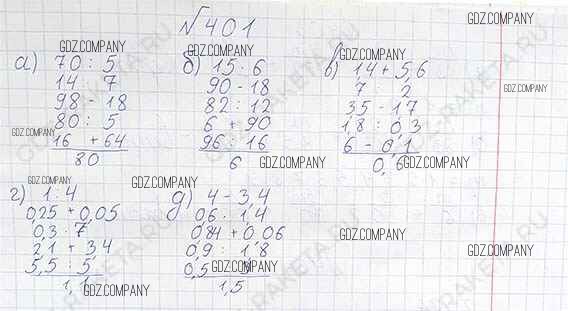 №401
а) 70 : 5
14 · 7
98 - 18
80 : 5
16 + 64
80
б) 15 · 6
90 - 18
82 : 12
6 + 90
96 : 16
6
в) 14 + 5,6
7 · 2
35 - 17
1,8 : 0,3
6 - 0,1
0,6
г) 1 : 4
0,25 + 0,05
0,3 · 7
2,1 + 3,4
5,5 : 5
1,1
д) 4 - 3,4
0,6 · 1,4
0,84 + 0,06
0,9 : 1,8
0,5
1,5
GDZ.COMPANY
GDZ.COMPANY
GDZ.COMPANY
GDZ.COMPANY
GDZ.COMPANY
GDZ.COMPANY
GDZ.COMPANY
GDZ.COMPANY
GDZ.COMPANY
GDZ.COMPANY
GDZ.COMPANY
GDZ.COMPANY
GDZ.COMPANY
GDZ.COMPANY